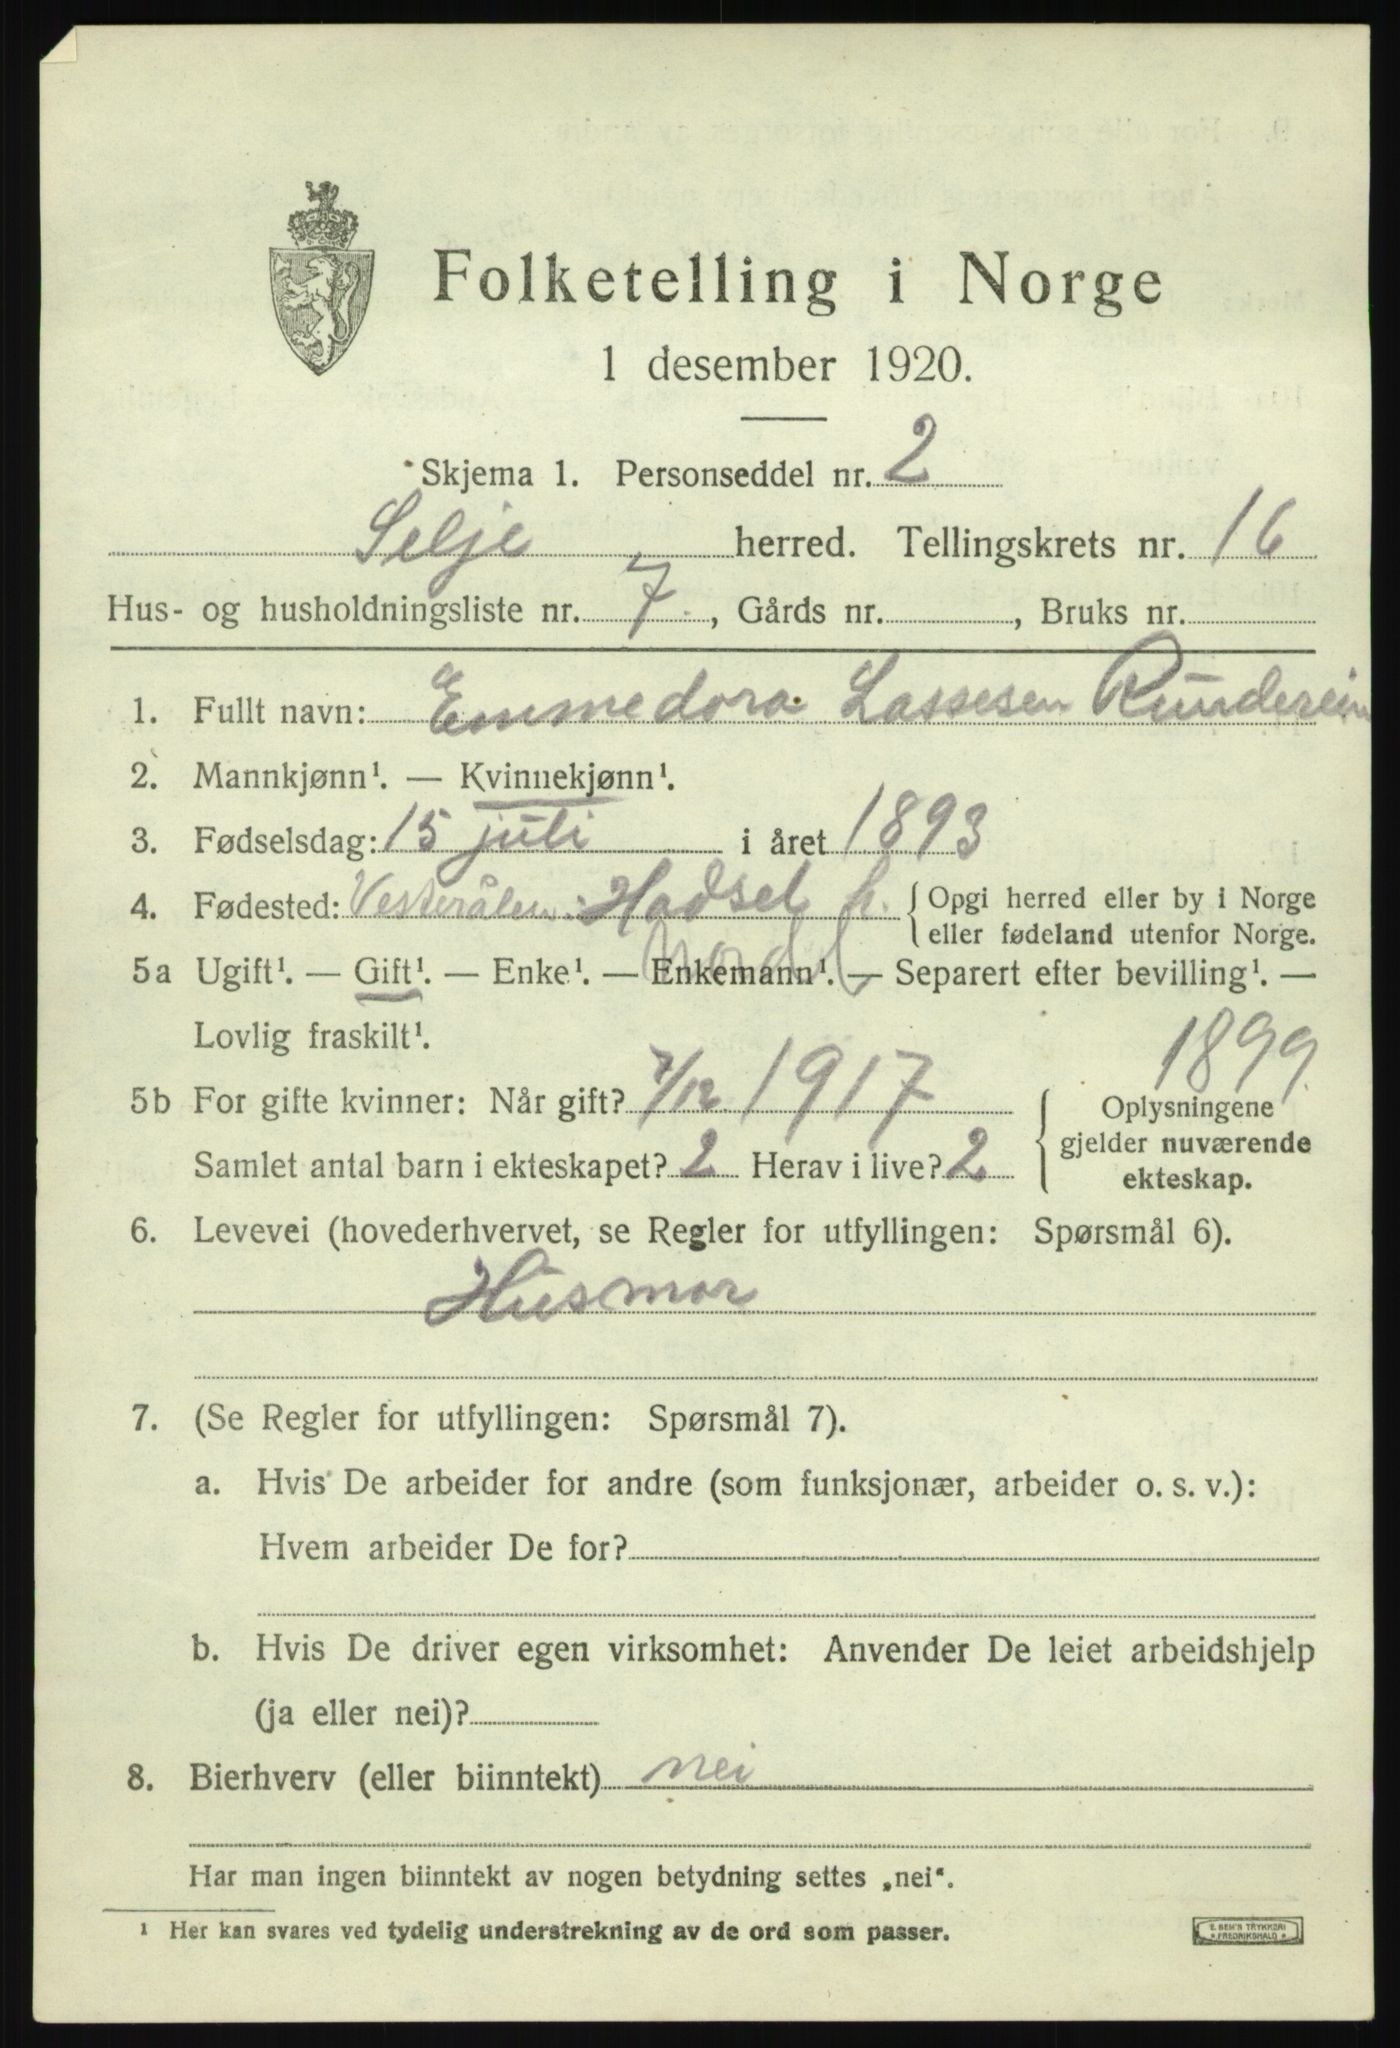 Folketelling i Norge
1 desember 1920.
Skjema 1. Personseddel nr. 2
Selje herred. Tellingskrets nr. 16
Hus- og husholdningsliste nr. 7, Gårds nr. , Bruks nr.
1. Fullt navn: Emmedora Lassesen Runderein
2. Mannkjønn¹. — Kvinnekjønn¹.
3. Fødselsdag: 15 juli i året 1893
4. Fødested: Vesterålen: Hadsel h. { Opgi herred eller by i Norge
eller fødeland utenfor Norge.
Nordl
5a Ugift¹. — Gift¹. — Enke¹. — Enkemann¹. — Separert efter bevilling¹. —
Lovlig fraskilt¹.
1899
5b For gifte kvinner: Når gift? 7/12 1917
Samlet antal barn i ekteskapet? 2 Herav i live? 2
{ Oplysningene
gjelder nuværende
ekteskap.
6. Levevei (hovederhvervet, se Regler for utfyllingen: Spørsmål 6).
Husmor
7. (Se Regler for utfyllingen: Spørsmål 7).
a. Hvis De arbeider for andre (som funksjonær, arbeider o. s. v.):
Hvem arbeider De for?
b. Hvis De driver egen virksomhet: Anvender De leiet arbeidshjelp
(ja eller nei)?
8. Bierhverv (eller biinntekt) nei
Har man ingen biinntekt av nogen betydning settes „nei“.
¹ Her kan svares ved tydelig understrekning av de ord som passer.
FREDRIKSHALD